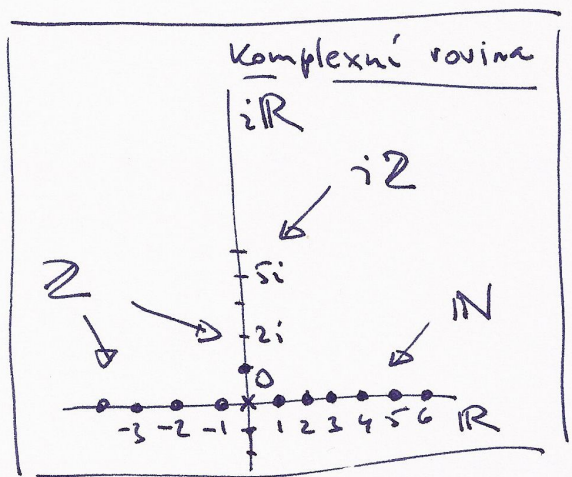 Komplexní rovina
iℝ
iℤ
5i
ℤ
ℕ
2i
0
-3 -2 -1 1 2 3 4 5 6 ℝ